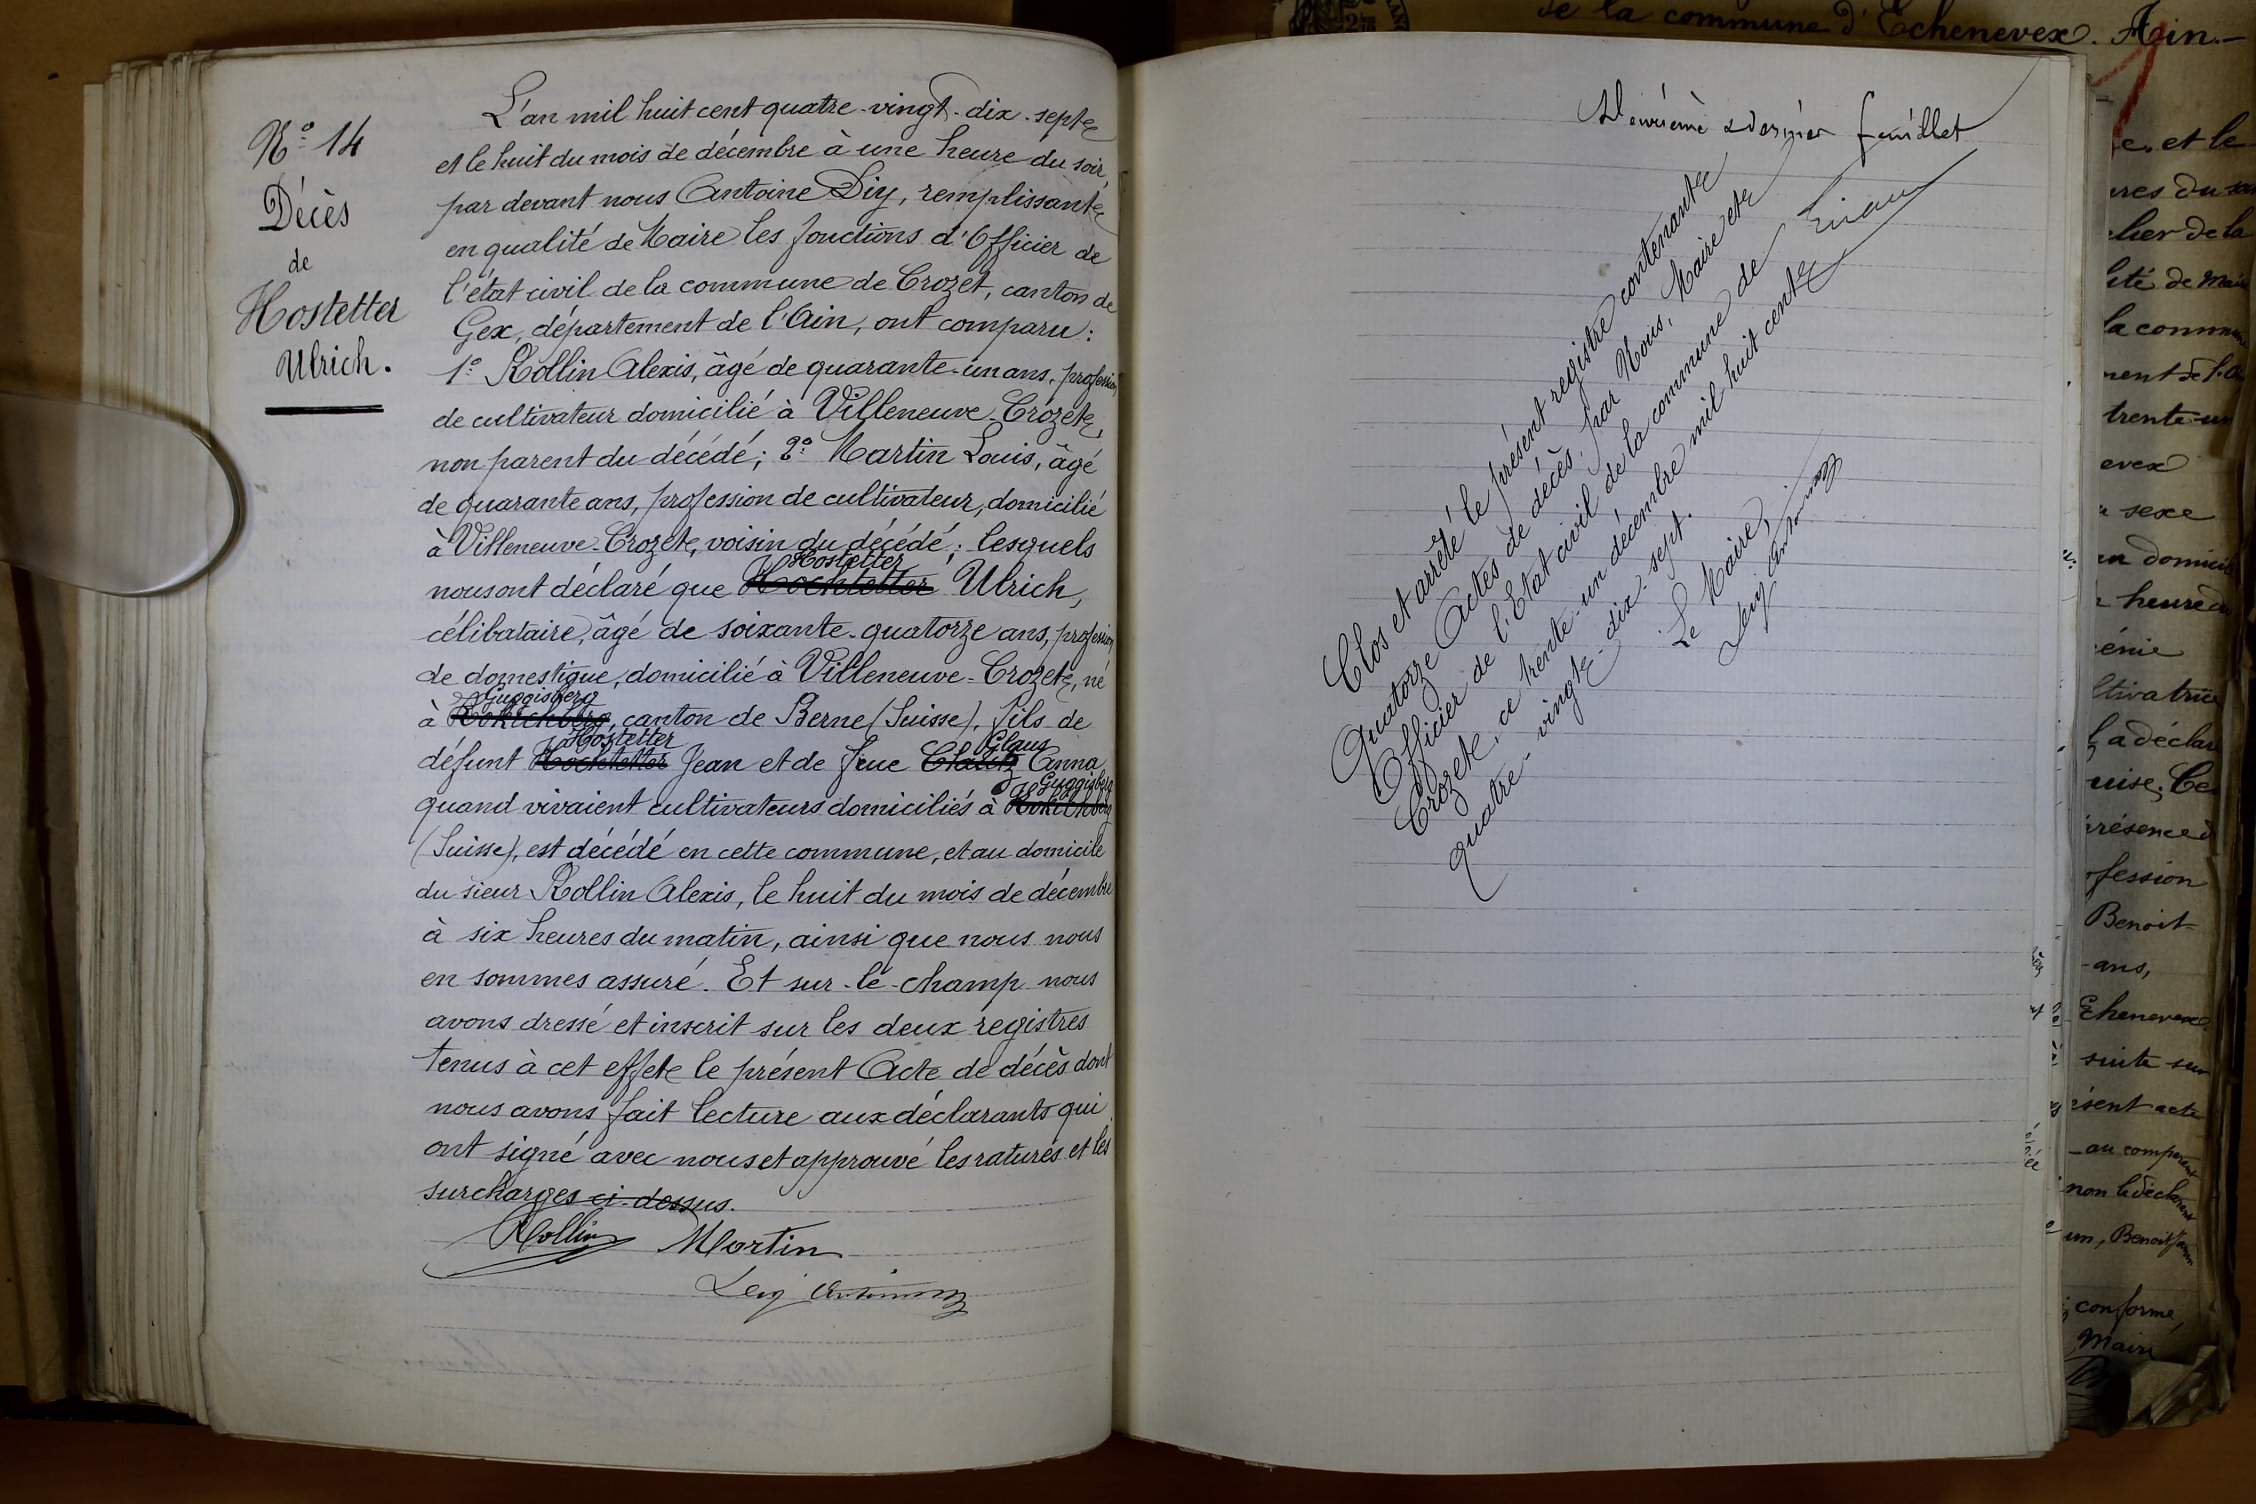 de la commune d'Echenevex. Ain.-
N° 14
Décès
de
Hostetter
Ulrich.
L'an mil huit cent quatre-vingt-dix-sept
et le huit du mois de décembre à une heure du soir,
par devant nous Antoine Diy, remplissant
en qualité de Maire les fonctions d'Officier de
l'état civil de la commune de Crozet, canton de
Gex, département de l'Ain, ont comparu:
1° Rollin Alexis, âgé de quarante-un ans, profession
de cultivateur domicilié à Villeneuve-Crozet,
non parent du décédé; 2° Martin Louis, âgé
de quarante ans, profession de cultivateur, domicilié
à Villeneuve-Crozet, voisin du décédé; lesquels
Hostetter
nous ont déclaré que Hochtetter Ulrich,
célibataire, âgé de soixante-quatorze ans, profession
de domestique, domicilié à Villeneuve-Crozet, né
Guggisberg
à canton de Berne (Suisse), fils de
Hostetter Glaus
défunt Hochtetter Jean et de feue Anna
Guggisberg
quand vivaient cultivateurs domiciliés à
(Suisse), est décédé en cette commune, et au domicile
du sieur Rollin Alexis, le huit du mois de décembre
à six heures du matin, ainsi que nous nous
en sommes assuré. Et sur-le-champ nous
avons dressé et inscrit sur les deux registres
tenus à cet effet le présent Acte de décès dont
nous avons fait lecture aux déclarants qui
ont signé avec nous et approuvé les ratures et les
surcharges ci-dessus.
Rollin Martin
Antoine
dernier feuillet
Clos et arrêté le présent registre contenant
Quatorze Actes de décès, par Nous, Maire et
Officier de l'Etat civil de la commune de
Crozet, ce trente-un décembre mil huit cent
quatre-vingt-dix-sept.
Le Maire,
Antoine
e, et le
res du soir
elier de la
lité de Mair
la commune
ment de l'Ain
trente-un
evex
sexe
domicile
heure du
énie
ltivatrice
a déclar
uise. Ce
présence d
fession
Benoit
-ans,
Echenevex
suite sur
ésent acte
-au comparant
non le déclarant
un, Benoit
conforme,
Maire